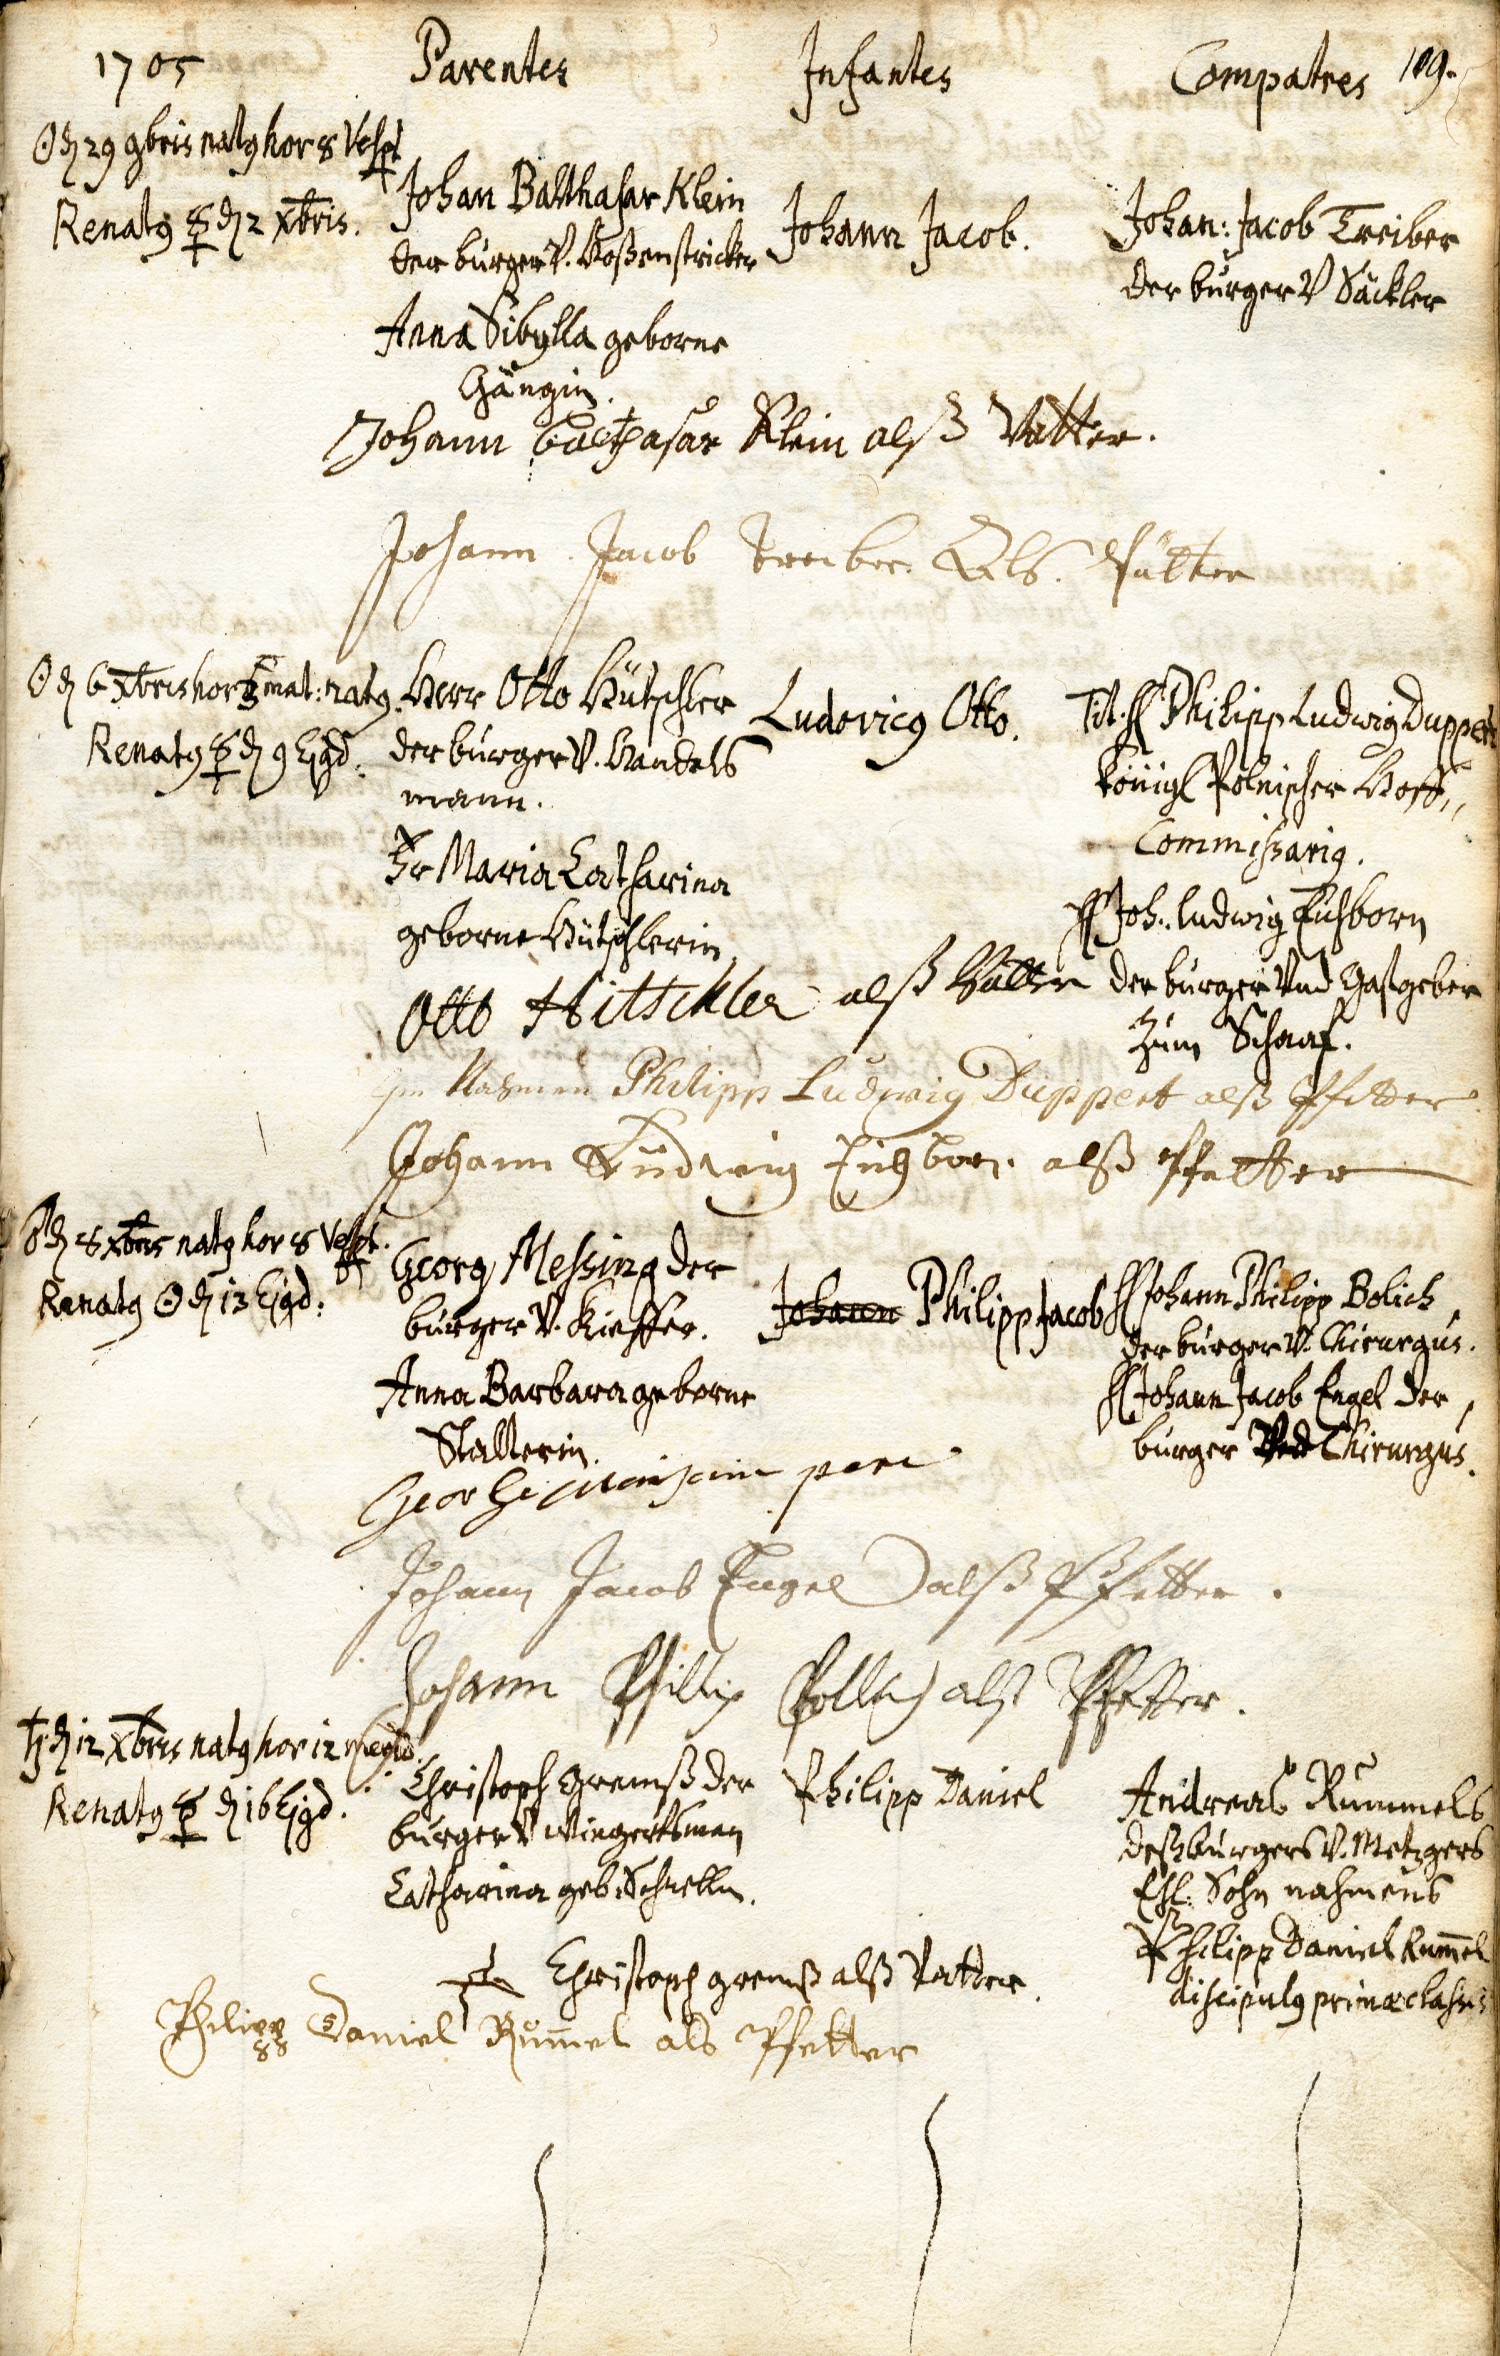 1705 Parentes Infantes Compatres 109.
☉ d 29 9bris nat9 hor 8 Vesp
Renat9 ☿ d 2 Xbris.
Johan Balthasar Klein
der burger V. Hoßenstricker
Anna Sibylla geborne
Gängin.
Johann Jacob.
Johan: Jacob Treiber
der burger V Säckler
Johann balthasar Klein alß Vatter.
Johann Jacob Treiber Als Pfätter
☉ d 6 Xbris hor 3 mat: nat9.
Renat9 ☿ d 9 Ejgd.
Herr Otto Hütschler
der burger V. Handels
mann.
Fr Maria Catharina
geborne Hütschlerin
Ludovic9 Otto.
Tit. H Philipp Ludwig Duppert
königl Polnischer Hoff,,
Commissari9.
H Joh: Ludwig Eichborn
der burger Und Gastgeber
zum Schaaf.
Otto Hitschler alß Vatter
im Nahmen Philipp Ludwig Duppert alß Pfetter
Johann Ludwig Eichborn alß Pfetter
d 8 Xbris nat9 hor 8 Vesp.
Renat9 ☉ d 13 Ejgd:
Georg Messing der
burger V. Kieffer.
Anna Barbara geborne
Stallerin.
Johann Philipp Jacob
H Johann Philipp Bolich
der burger V. Chirurgus.
H Johann Jacob Engel der
burger Und Chirurgus.
Johann Jacob Engel alß Pfetter.
Johann Phillip Pollich alß Pfetter.
♄ d 12 Xbris nat9 hor 12 merid.
Renat9 ☿ d 16 Ejgd.
Christoph Gremß der
burger V Wingertsman
Catharina geb: Schnellin.
Philipp Daniel
Andreas Rummels
deß burgers V. Metzgers
Ehl: Sohn nahmens
Philipp Daniel Rum̄el
discipul9 primæ classis
Christoph gremß alß Vatter.
Philipp Daniel Rum̄el als Pfetter